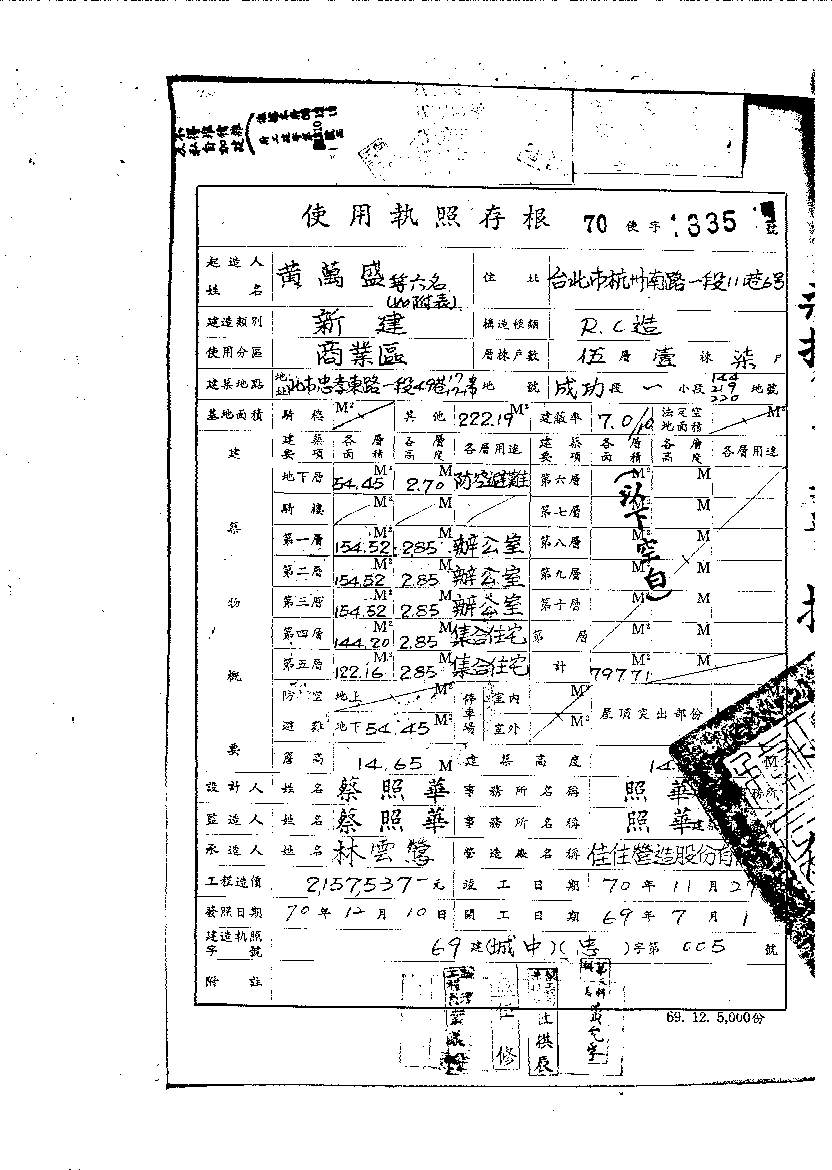 使用執照存根 70 使字 1335 號
起造人姓名 黃萬盛等六名(如附表) 住址 台北市杭州南路一段11巷6号
建造類別 新建 構造種類 R.C造
使用分區 商業區 層棟戶數 伍層壹棟柒戶
建築地點 北市忠孝東路一段49巷 地號 成功段一小段 144 219 220 地號
基地面積 騎樓 M² 其他 222.19 M² 建蔽率 7.0/10 法定空地面積 M²
建築物概要 建築要項 各層面積 各層高度 各層用途 建築要項 各層面積 各層高度 各層用途
地下層 54.45 M² 2.70 M 防空避難 第六層 M² M
騎樓 第七層 M² M
第一層 154.52 M² 2.85 M 辦公室 第八層 M² M
第二層 154.52 M² 2.85 M 辦公室 第九層 M² M
第三層 154.52 M² 2.85 M 辦公室 第十層 M² M
第四層 144.20 M² 2.85 M 集合住宅 第 層 M² M
第五層 122.16 M² 2.85 M 集合住宅 計 797.71 M² M
(以下空白)
防空 地上 M² 停車場 室內 M² 屋頂突出部份
避難 地下 54.45 M² 室外 M²
簷高 14.65 M 建築高度 14 M
設計人 姓名 蔡照華 事務所名稱 照華 事務所
監造人 姓名 蔡照華 事務所名稱 照華建
承造人 姓名 林雲鶯 營造廠名稱 佳佳營造股份有
工程造價 2,157,537-元 竣工日期 70年11月2
發照日期 70年12月10日 開工日期 69年7月1
建造執照字號 69建(城中)(忠)字第005號
附註
69. 12. 5,000份